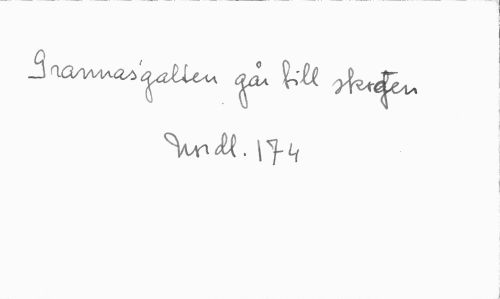 Grannasgalten går till skogen
Nordl. 174